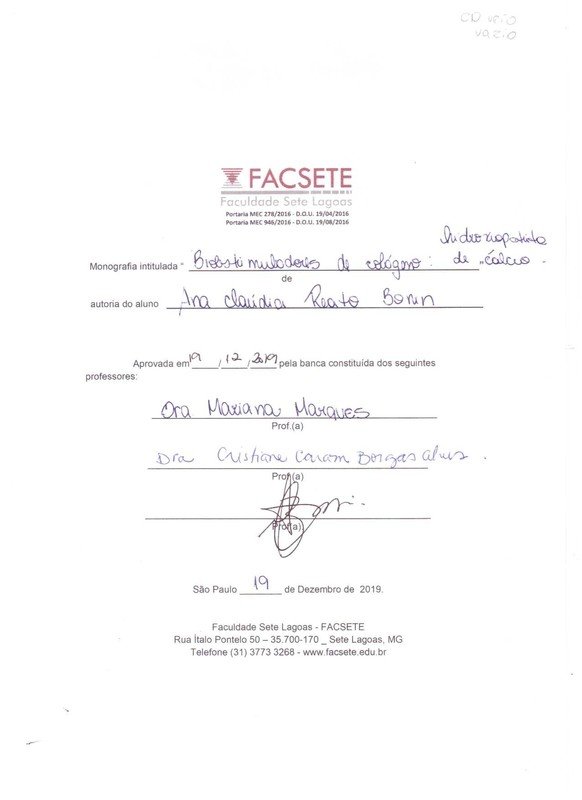 CD veio
vazio
FACSETE
Faculdade Sete Lagoas
Portaria MEC 278/2016 - D.O.U. 19/04/2016
Portaria MEC 946/2016 - D.O.U. 19/08/2016
Hidroxiapatita
Monografia intitulada " Bioestimuladores de colágeno: de cálcio.
de
autoria do aluno Ana Claúdia Reato Bonin
Aprovada em 19 / 12 / 2019 pela banca constituída dos seguintes
professores:
Dra Mariana Marques
Prof.(a)
Dra Cristiane Borges Alves.
Prof(a)
Prof(a)
São Paulo 19 de Dezembro de 2019.
Faculdade Sete Lagoas - FACSETE
Rua Ítalo Pontelo 50 – 35.700-170 _ Sete Lagoas, MG
Telefone (31) 3773 3268 - www.facsete.edu.br